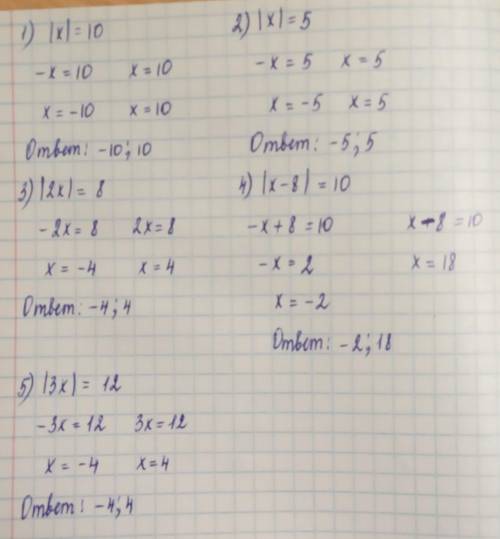 1) |x| = 10
-x = 10 x = 10
x = -10 x = 10
Ответ: -10; 10
2) |x| = 5
-x = 5 x = 5
x = -5 x = 5
Ответ: -5; 5
3) |2x| = 8
-2x = 8 2x = 8
x = -4 x = 4
Ответ: -4; 4
4) |x-8| = 10
-x+8 = 10 x-8 = 10
-x = 2 x = 18
x = -2
Ответ: -2; 18
5) |3x| = 12
-3x = 12 3x = 12
x = -4 x = 4
Ответ: -4; 4